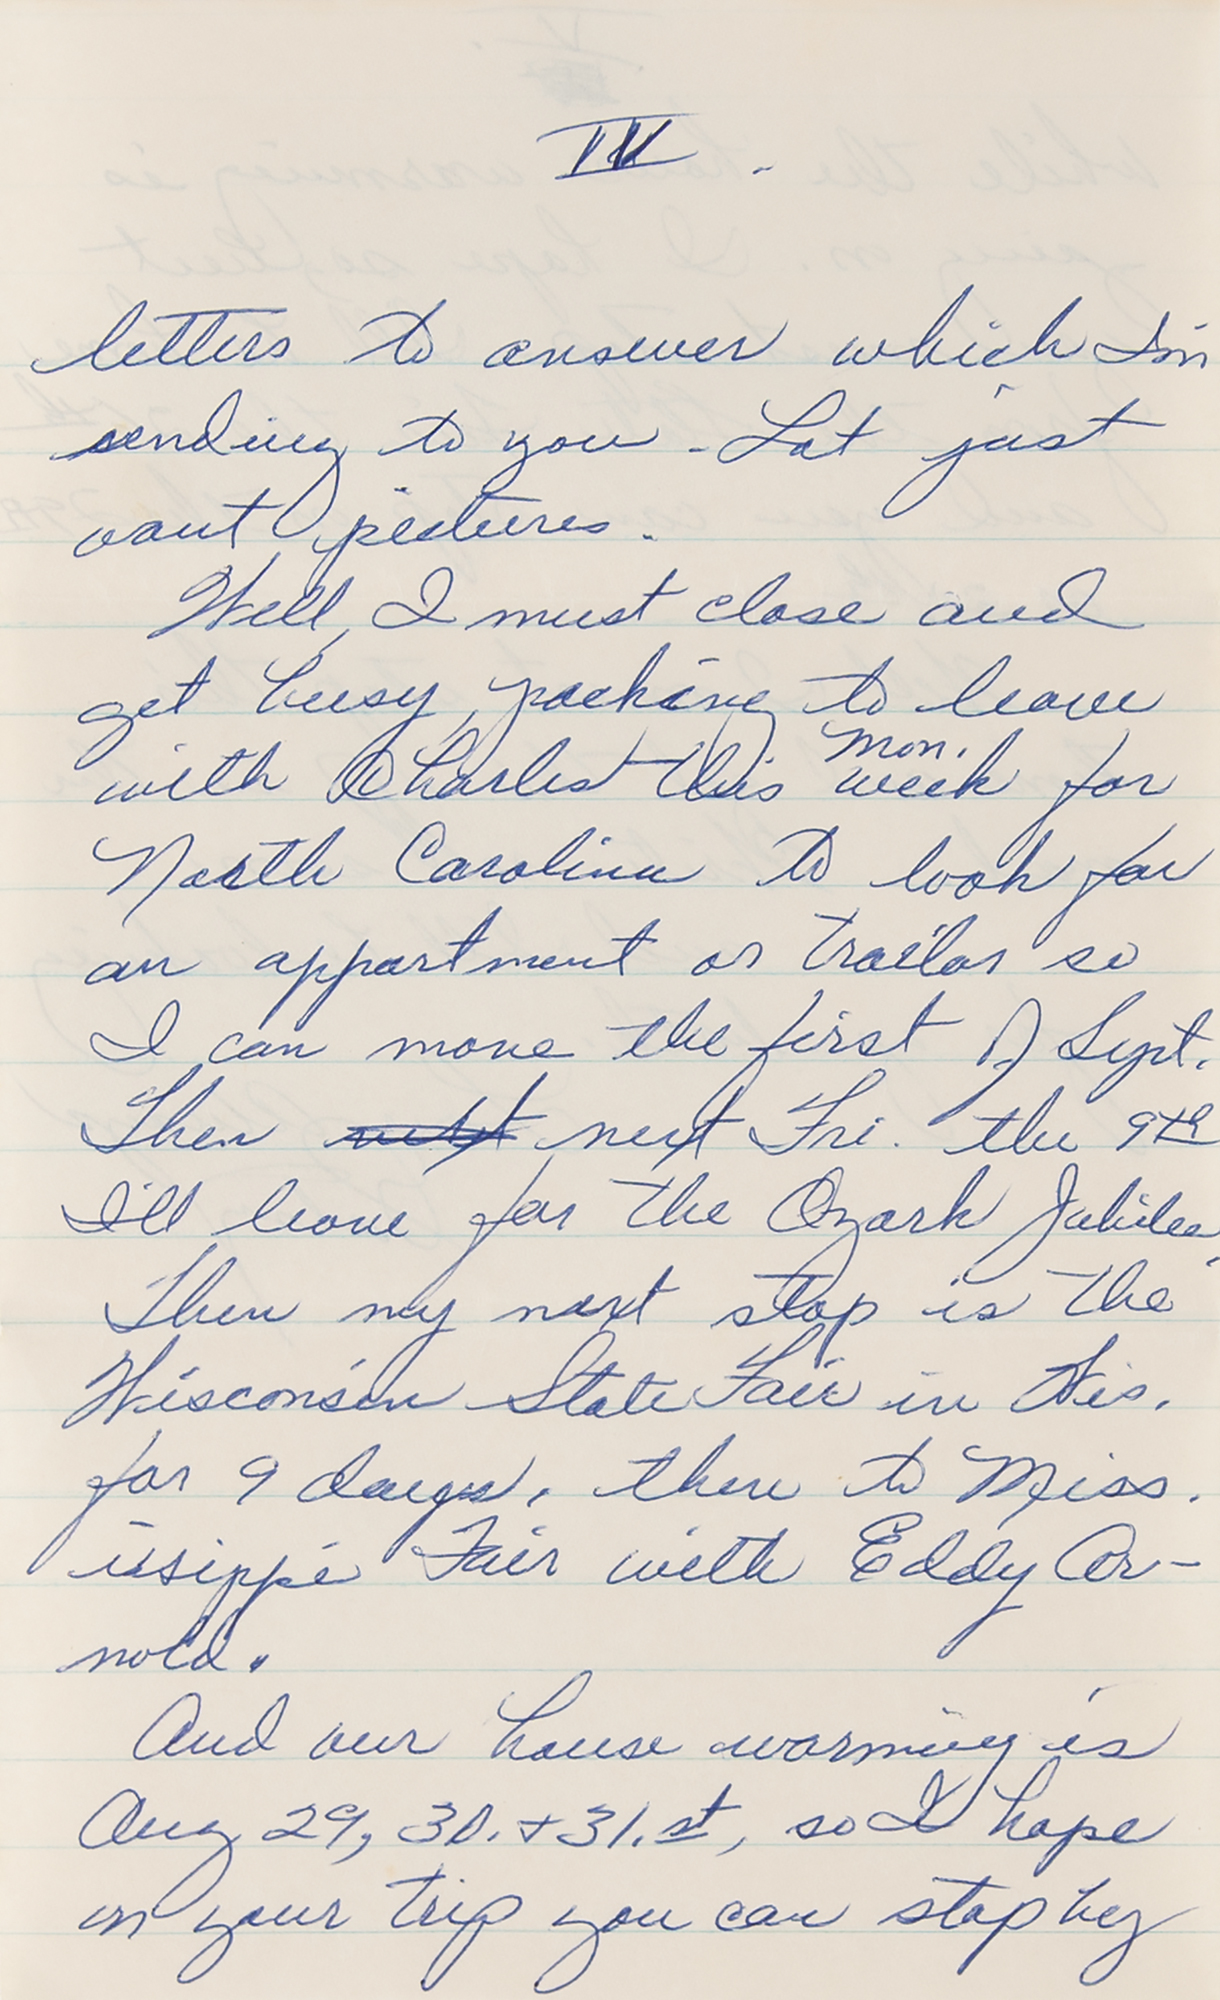 IV.
letters to answer which I'm
sending to you - Lot just
want pictures.
Well, I must close and
get busy, packing to leave
with Charles this Mon. week for
North Carolina to look for
an appartment or trailor so
I can move the first of Sept.
Then next next Fri. the 9th
I'll leave for the Ozark Jubilee,
Then my next stop is the
Wisconsin State Fair in Wis.
for 9 days, then to Miss.
issippi Fair with Eddy Ar-
nold.
And our house warming is
Aug 29, 30. + 31.st, so I hope
on your trip you can stop by